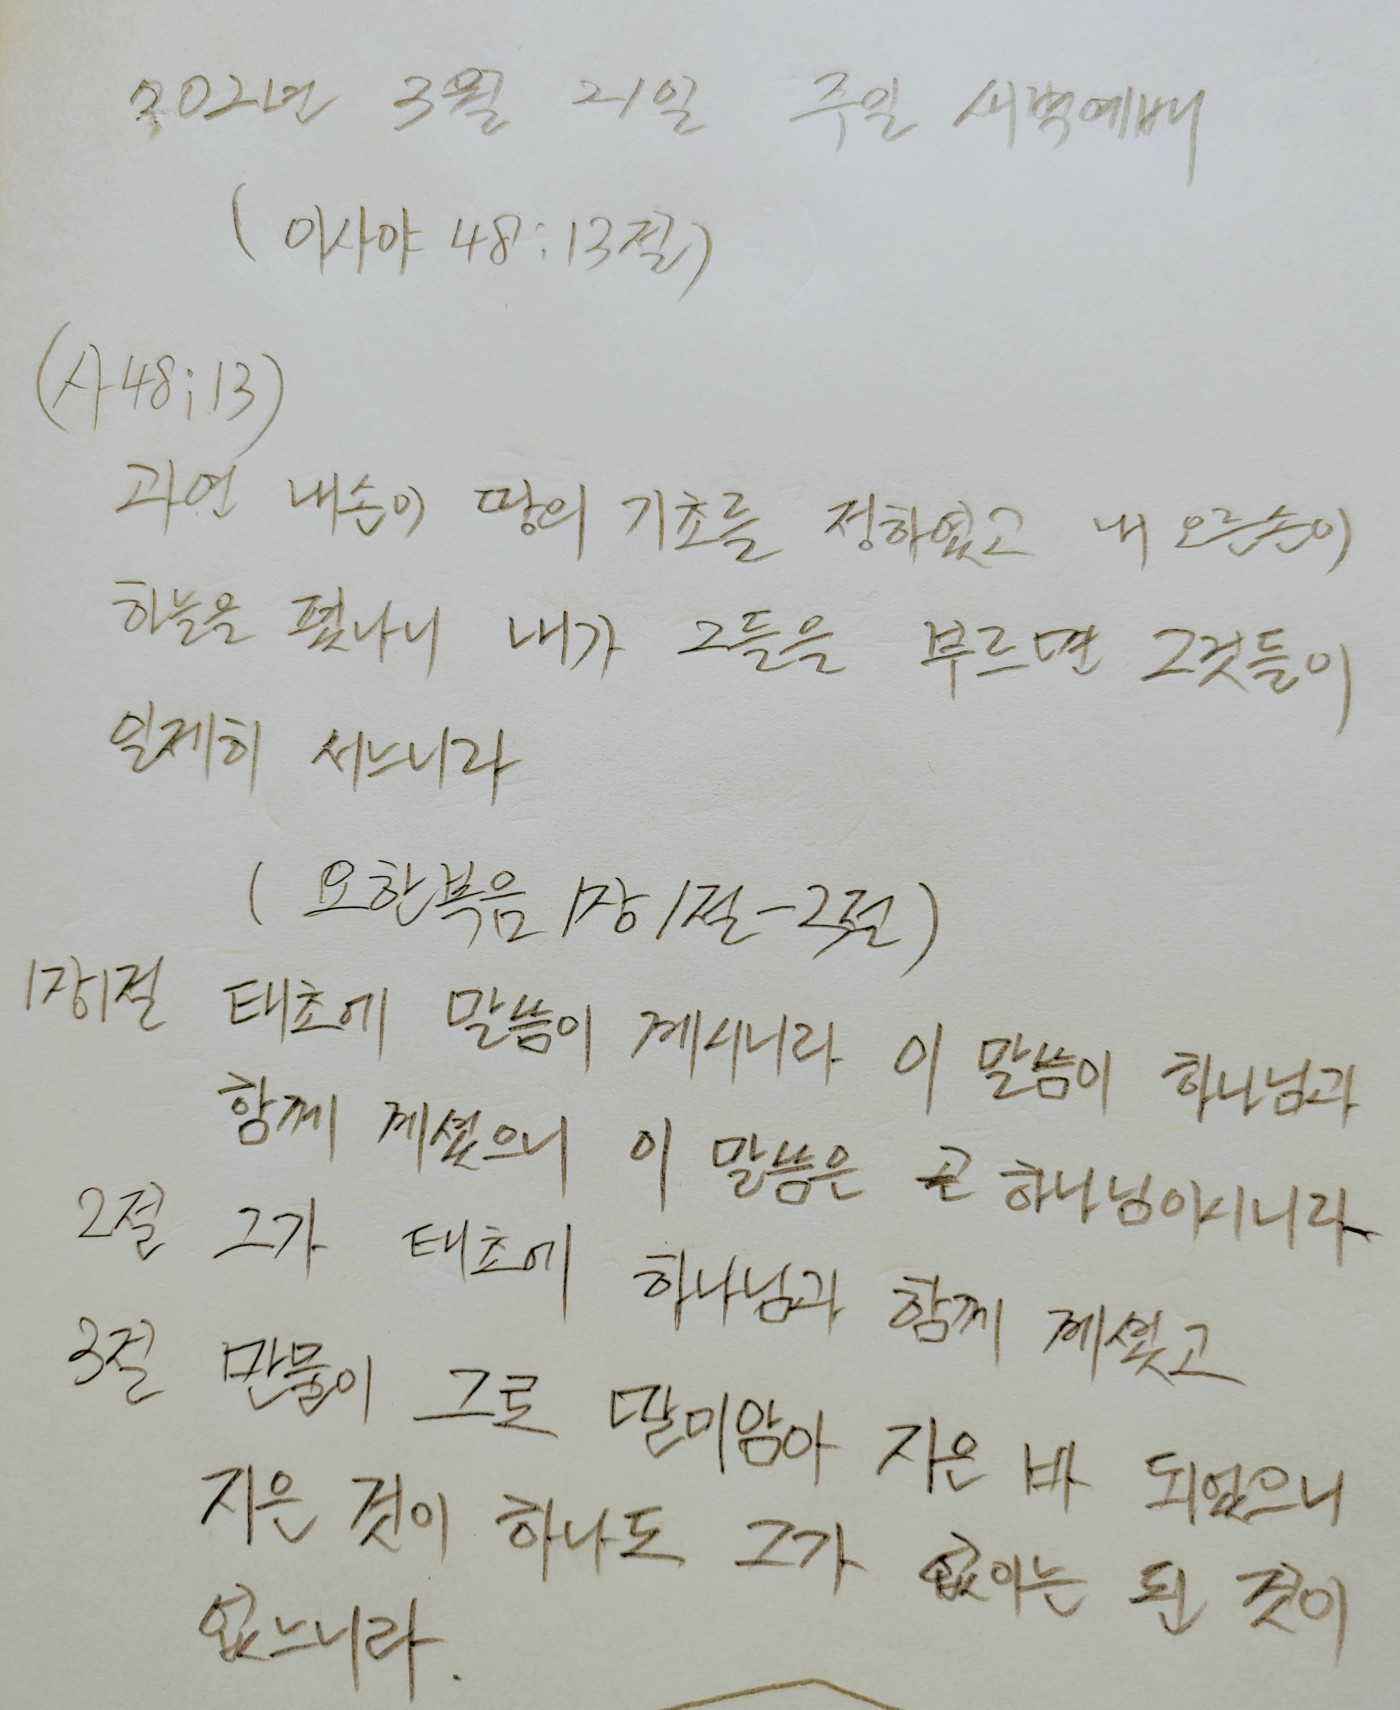 2021년 3월 21일 주일 새벽예배
(이사야 48:13절)
(사48;13)
과연 내손이 땅의 기초를 정하였고 내 오른손이
하늘을 폈나니 내가 그들을 부르면 그것들이
일제히 서느니라
(요한복음 1장 1절-2절)
1장1절 태초에 말씀이 계시니라 이 말씀이 하나님과
함께 계셨으니 이 말씀은 곧 하나님이시니라
2절 그가 태초에 하나님과 함께 계셨고
3절 만물이 그로 말미암아 지은 바 되었으니
지은 것이 하나도 그가 없이는 된 것이
없느니라.